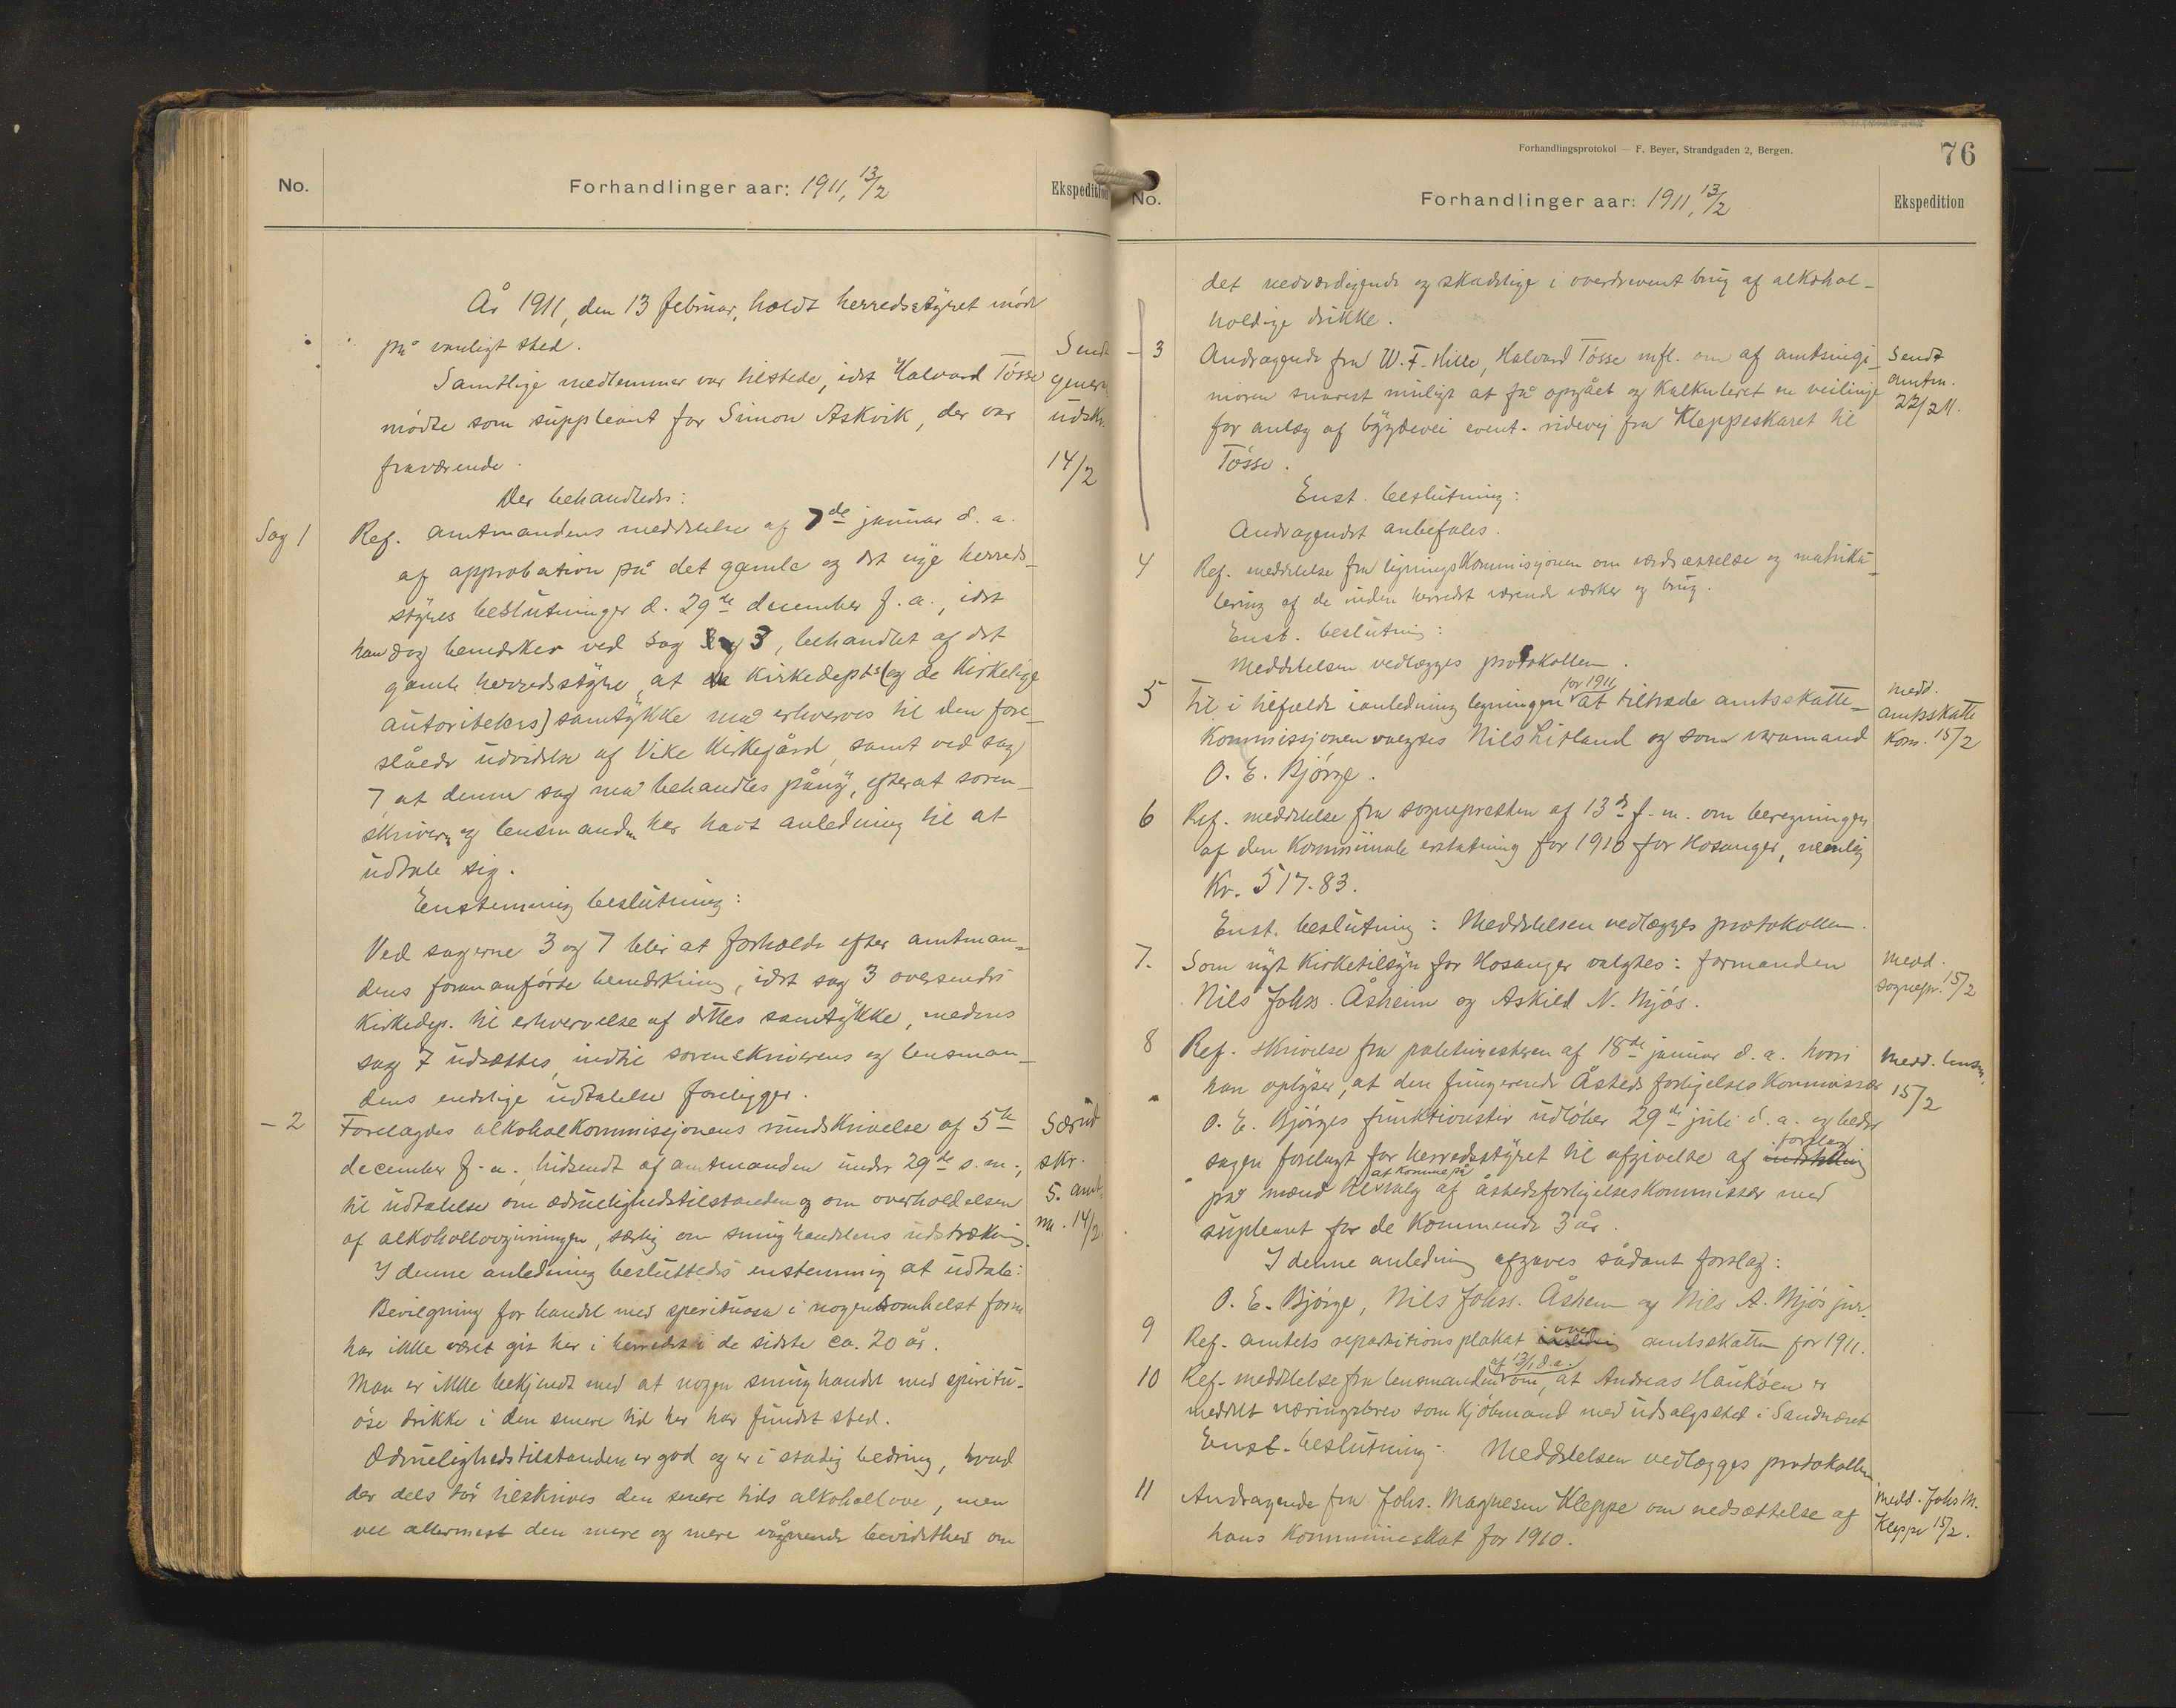 No.
Forhandlinger aar: 1911, 13/2
Ekspedition
År 1911, den 13 februar, holdt herredsstyret møde
på vanligt sted.
Samtlige medlemmer var tilstede, idet Halvard Tösse
mødte som suppleant for Simon Askvik, der var
fraværende.
Sendt
gener.
udskr.
14/2
Der behandledes:
Sag 1
Ref. amtmandens meddelelse af 7de januar d. a.
af approbation på det gamle og det nye herreds-
styres beslutninger d. 29de december f. a., idet
han dog bemærker ved sag 3, behandlet af det
gamle herredsstyre, at kirkedepts (og de kirkelige
autoriteters) samtykke må erhverves til den fore-
slåede udvidelse af Vike kirkegård, samt ved sag
7 at denne sag må behandles påny, efterat soren-
skriveren og lensmanden har havt anledning til at
udtale sig.
Enstemmig beslutning:
Ved sagerne 3 og 7 blir at forholde efter amtman-
dens foran anførte bemærkning, idet sag 3 oversendes
kirkedep. til erhvervelse af dettes samtykke, medens
sag 7 udsættes indtil sorenskriverens og lensman-
dens endelige udtalelse foreligger.
- 2
Forelagdes alkoholkommissjonens rundskrivelse af 5te
december f. a., hidsendt af amtmanden under 29de s. m.,
til udtalelse om ædruelighedstilstanden og om overholdelsen
af alkohollovgivningen, særlig om smughandelens udstrækning.
Særud
skr.
s. amt
m. 14/2
I denne anledning besluttedes enstemmig at udtale:
Bevilgning for handel med spirituosa i nogensomhelst form
har ikke været git her i herredet i de sidste ca. 20 år.
Man er ikke bekjendt med at nogen smughandel med spiritu-
øse drikke i den senere tid her har fundet sted.
Ædruelighedstilstanden er god og er i stadig bedring, hvad
der dels tør tilskrives den senere tids alkohollove, men
vel allermest den mere og mere vågnende bevidsthed om
Forhandlingsprotokol — F. Beyer, Strandgaden 2, Bergen.
76
No.
Forhandlinger aar: 1911, 13/2
Ekspedition
det nedværdigende og skadelige i overdrevent brug af alkohol-
holdige drikke.
- 3
Andragende fra W. F. Hille, Halvard Tösse mfl. om af amtsingi-
niøren snarest muligt at få opgået og kalkuleret en veilinje
for anlæg af bygdevei event. ridevej fra Kleppeskaret til
Tösse.
Sendt
amtm.
22/2 11.
Enst. beslutning:
Andragendet anbefales.
4
Ref. meddelelse fra ligningskommissjonen om værdsættelse og matriku-
lering af de inden herredet værende værker og brug.
Enst. beslutning:
Meddelelsen vedlægges protokollen.
5
Til i tilfælde i anledning ligningen for 1911 at tiltræde amtsskatte-
kommissjonen valgtes Nils Litland og som varamand
O. E. Bjørge.
Medd.
amtsskatte
kom. 15/2
6
Ref. meddelelse fra sognepresten af 13de f. m. om beregningen
af den kommunale erstatning for 1910 for Hosanger, nemlig
Kr. 517.83.
Enst. beslutning: Meddelelsen vedlægges protokollen.
7.
Som nyt kirketilsyn for Hosanger valgtes: formanden
Nils Johss. Åsheim og Askild N. Mjøs.
Medd.
sognepr. 15/2
8
Ref. skrivelse fra politimesteren af 18de januar d. a. hvori
han oplyser, at den fungerende Åstedsforligelseskommissær
O. E. Bjørges funktionstid udløber 29de juli d. a. og beder
sagen forelagt for herredsstyret til afgivelse af indstilling forslag
på mænd til at komme på valg af åstedsforligelseskommissær med
supleant for de kommende 3 år.
Medd. lensm.
15/2
I denne anledning afgaves sådant forslag:
O. E. Bjørge, Nils Johss. Åsheim og Nils A. Mjøs jur.
9
Ref. amtets repartitionsplakat over amtsskatten for 1911.
10
Ref. meddelelse fra lensmanden af 13/1 d. a. om, at Andreas Haukøen er
meddelt næringsbrev som kjøbmand med udsalgssted i Sandnæset
Enst. beslutning: Meddelelsen vedlægges protokollen.
11
Andragende fra Johs. Magnesen Kleppe om nedsættelse af
hans kommuneskat for 1910.
Medd. Johs M.
Kleppe 15/2.